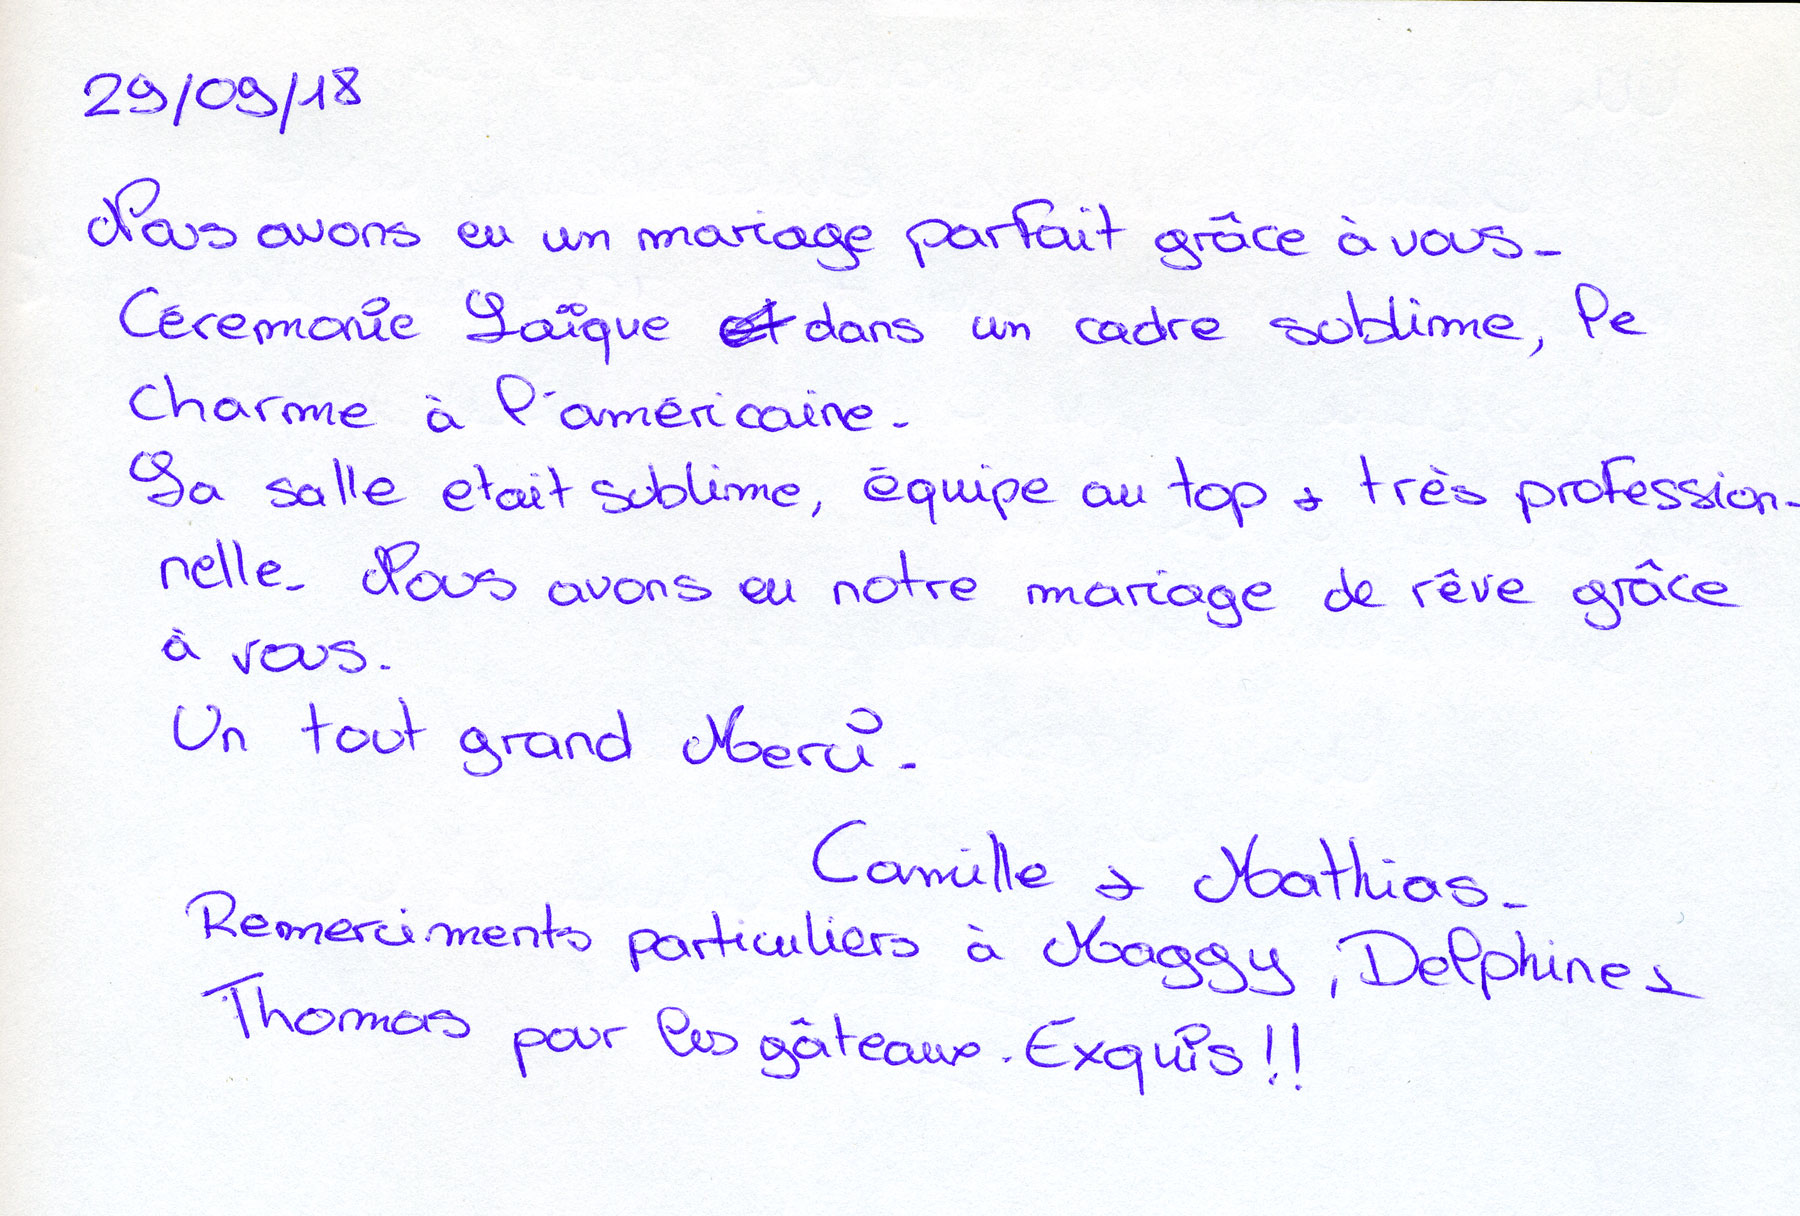 29/09/18
Nous avons eu un mariage parfait grâce à vous.
Céremonie Laïque dans un cadre sublime, le
charme à l'américaine.
La salle etait sublime, équipe au top + très profession-
nelle. Nous avons eu notre mariage de rêve grâce
à vous.
Un tout grand Merci.
Camille + Mathias.
Remerciments particuliers à Maggy, Delphine +
Thomas pour les gâteaux. Exquis !!